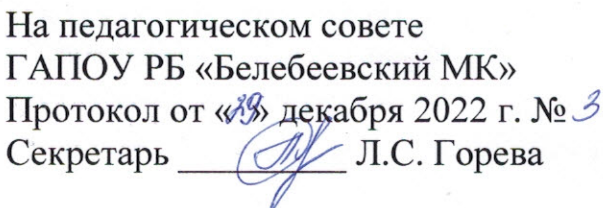 На педагогическом совете
ГАПОУ РБ «Белебеевский МК»
Протокол от «29» декабря 2022 г. № 3
Секретарь __________ Л.С. Горева